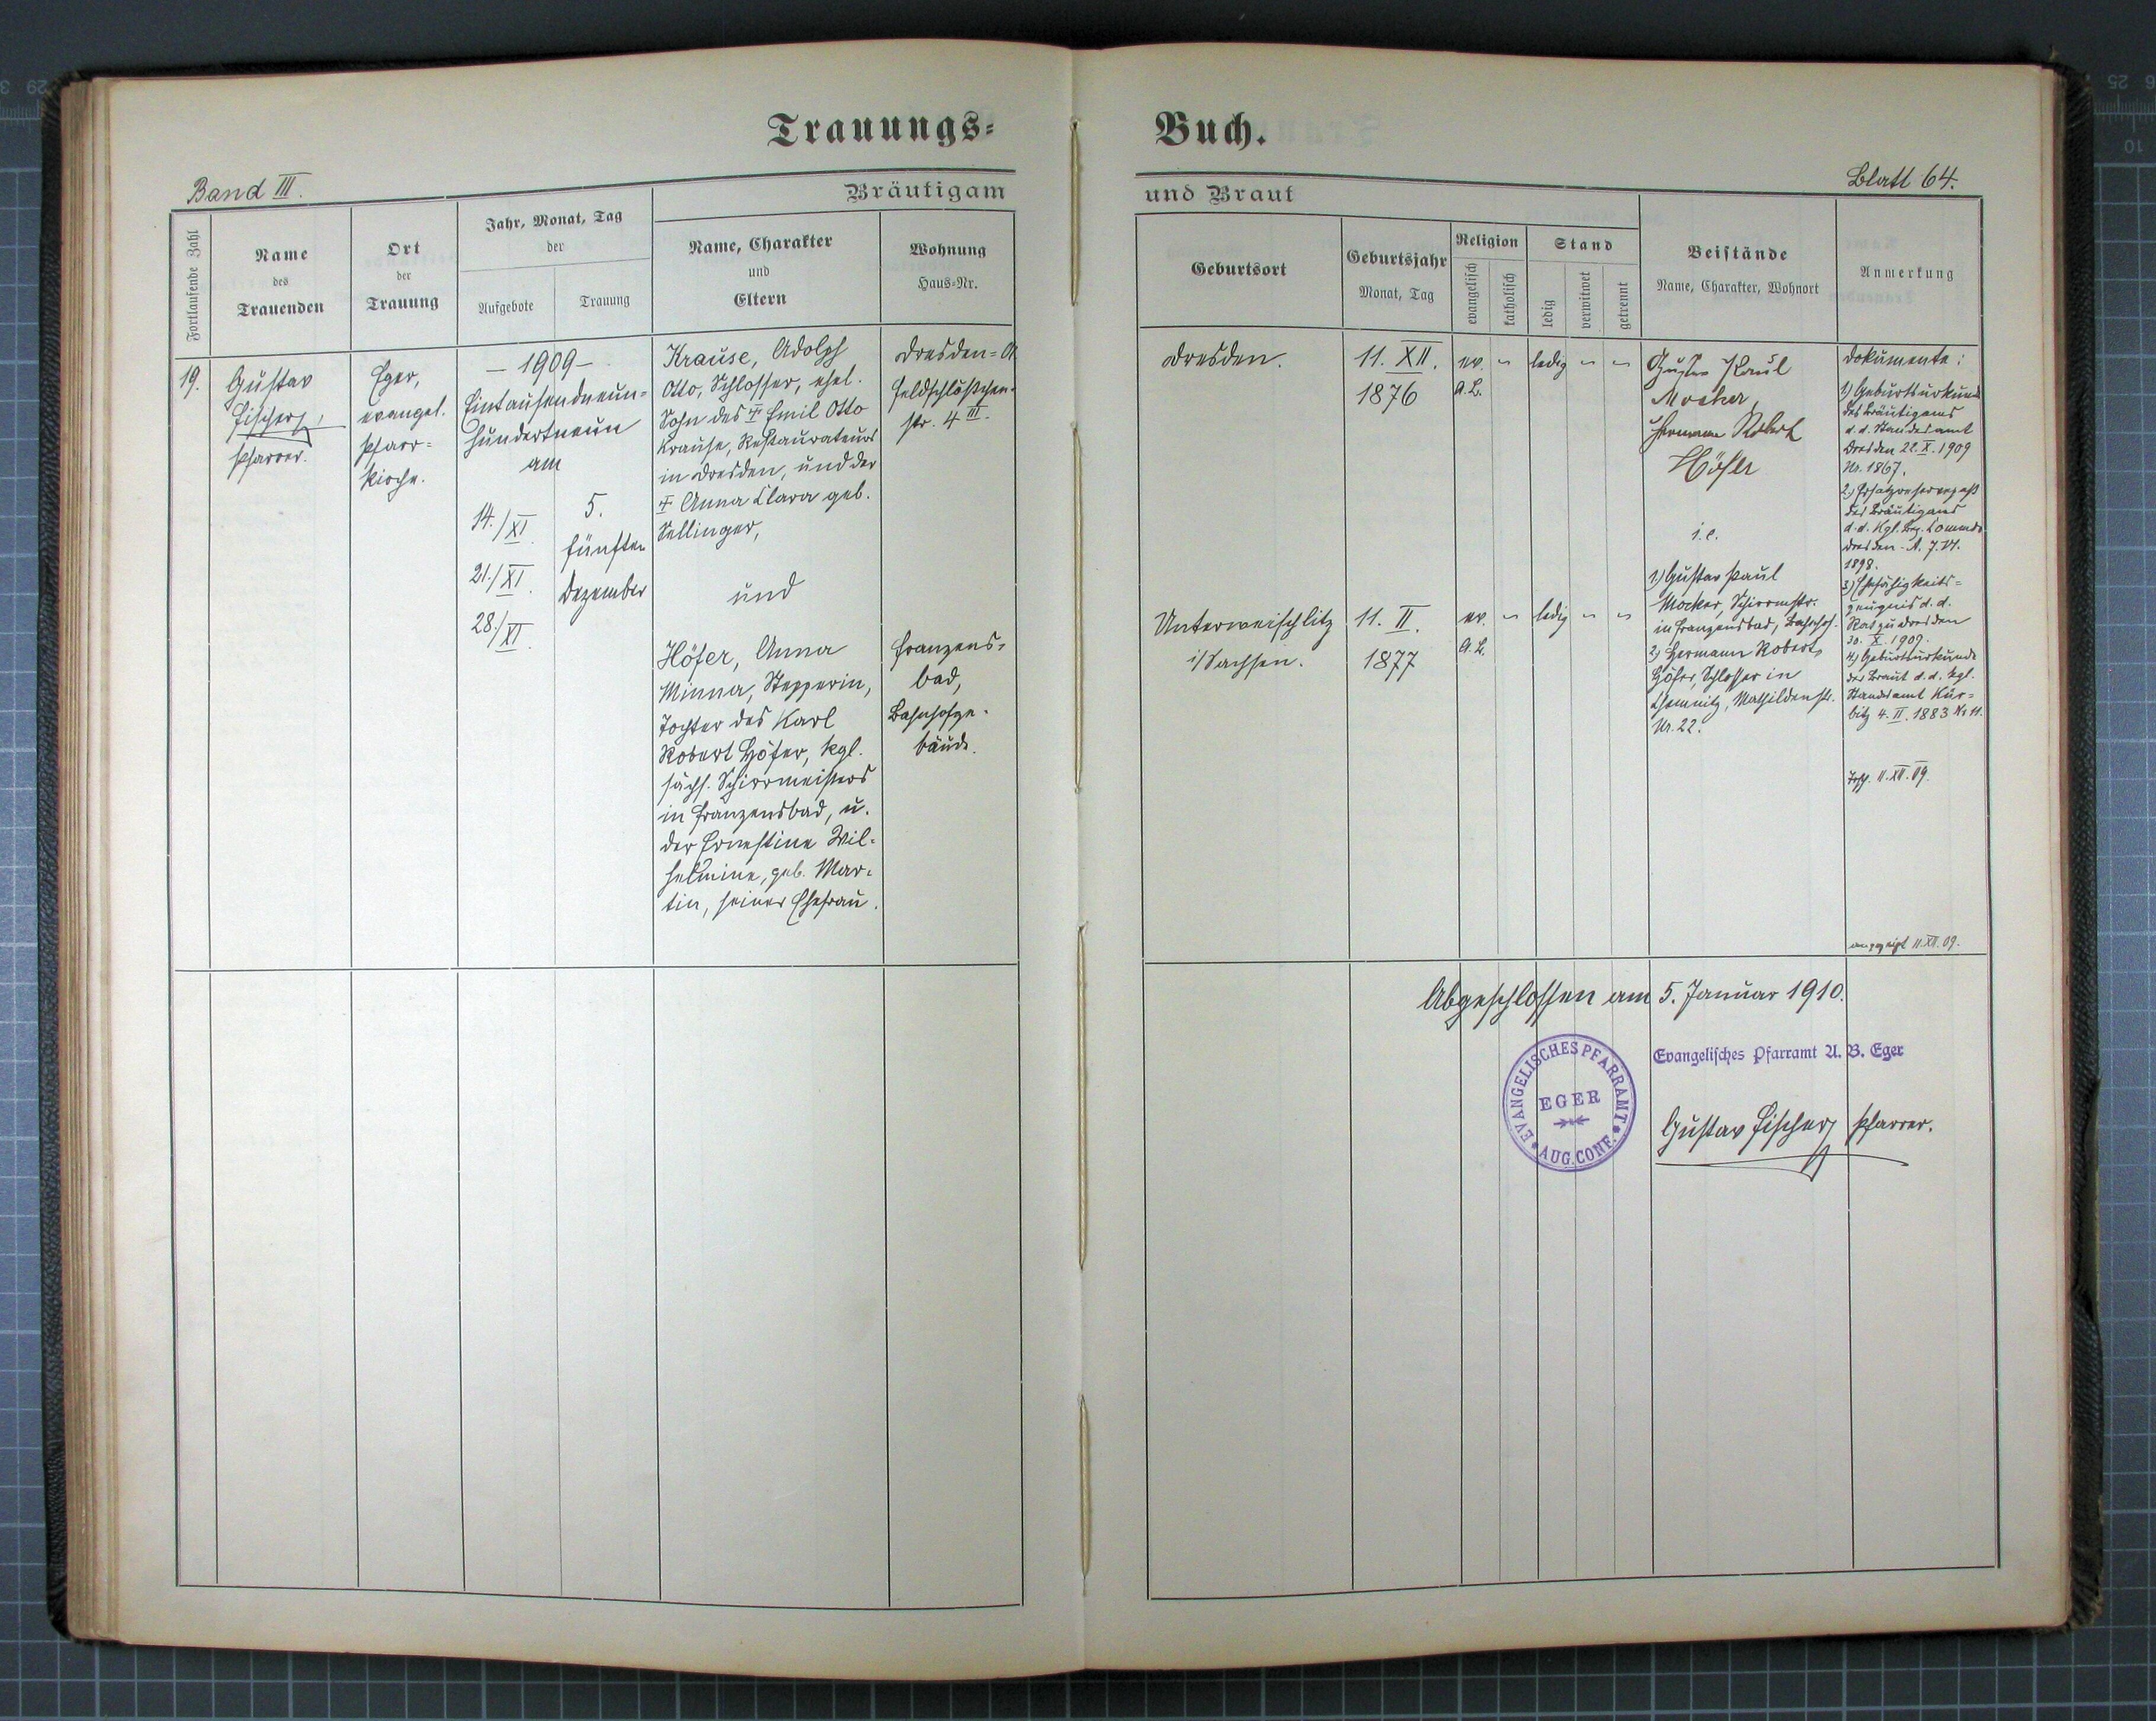 Trauungs-
Buch.
Band III.
Blatt 64.
Bräutigam
und Braut
Fortlaufende Zahl
Name
des
Trauenden
Ort
der
Trauung
Jahr, Monat, Tag
der
Aufgebote
Trauung
Name, Charakter
und
Eltern
Wohnung
Haus-Nr.
Geburtsort
Geburtsjahr
Monat, Tag
Religion
evangelisch
katholisch
Stand
ledig
verwitwet
getrennt
Beistände
Name, Charakter, Wohnort
Anmerkung
19.
Gustav
Fischer,
Pfarrer.
Eger,
evangel.
Pfarr-
kirche.
- 1909 -
Eintausendneun-
hundertneun
am
14./XI.
21./XI.
28./XI.
5.
fünften
Dezember
Krause, Adolph
Otto, Schlosser, ehel.
Sohn des † Emil Otto
Krause, Restaurateurs
in Dresden, und der
† Anna Clara geb.
Sellinger,
und
Höfer, Anna
Minna, Stepperin,
Tochter des Karl
Robert Höfer, kgl.
sächs. Schirrmeisters
in Franzensbad, u.
der Ernestine Wil-
helmine, geb. Mar-
tin, seiner Ehefrau.
Dresden-A
Feldschlößchen-
str. 4 III.
Franzens-
bad,
Bahnhofge-
bäude.
Dresden.
Unterweischlitz
i/Sachsen.
11. XII.
1876
11. II.
1877
ev. " ledig " "
A.B.
ev. " ledig " "
A.B.
Gustav Paul
Mocker,
Hermann Robert
Höfer
i.e.
1.) Gustav Paul
Mocker, Schirrmstr.
in Franzensbad, Bahnhof.
2.) Hermann Robert
Höfer, Schlosser in
Chemnitz, Mathildenstr.
Nr. 22.
Dokumente:
1.) Geburtsurkunde
des Bräutigams
d.d. Standesamt
Dresden 22. X. 1909
Nr. 1867.
2.) Ersatzreservepaß
des Bräutigams
d.d. Kgl. Bez. Commdo
Dresden-A. 7. VI.
1898.
3.) Ehefähigkeits-
zeugnis d.d.
Rat zu Dresden
30. X. 1909.
4.) Geburtsurkunde
der Braut d.d. kgl.
Standesamt Kür-
bitz 4. II. 1883 Nr 11.
11. XII. 09.
angezeigt 11. XII. 09.
Abgeschlossen am 5. Januar 1910.
Evangelisches Pfarramt A. B. Eger
EVANGELISCHES PFARRAMT
EGER
AUG. CONF.
Gustav Fischer, Pfarrer.